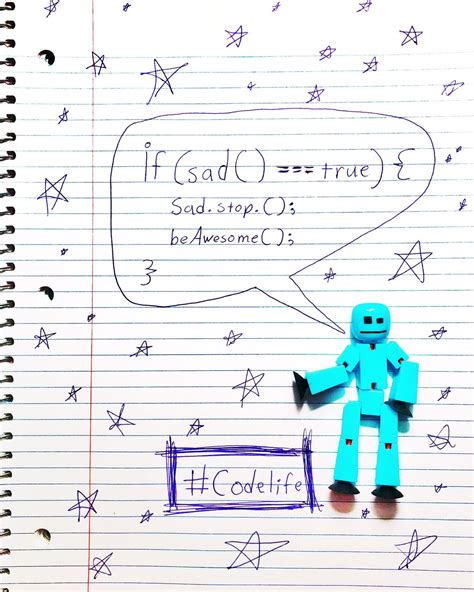 if (sad() === true) {
sad.stop.();
beAwesome();
}
#Codelife